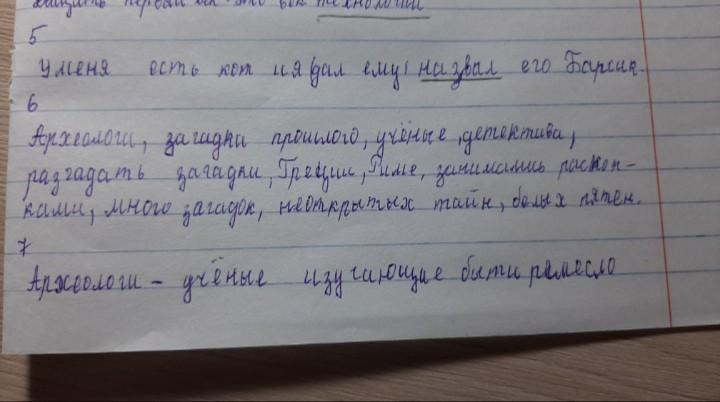 первый век - это век технологии
5
У меня есть кот и я дал ему назвал его Барсик.
6
Археологи, загадки прошлого, учёные, детектива,
разгадать загадки, Греции, Риме, занимались раскоп-
ками, много загадок, неоткрытых тайн, белых пятен.
7
Археологи - учёные изучающие быт и ремесло